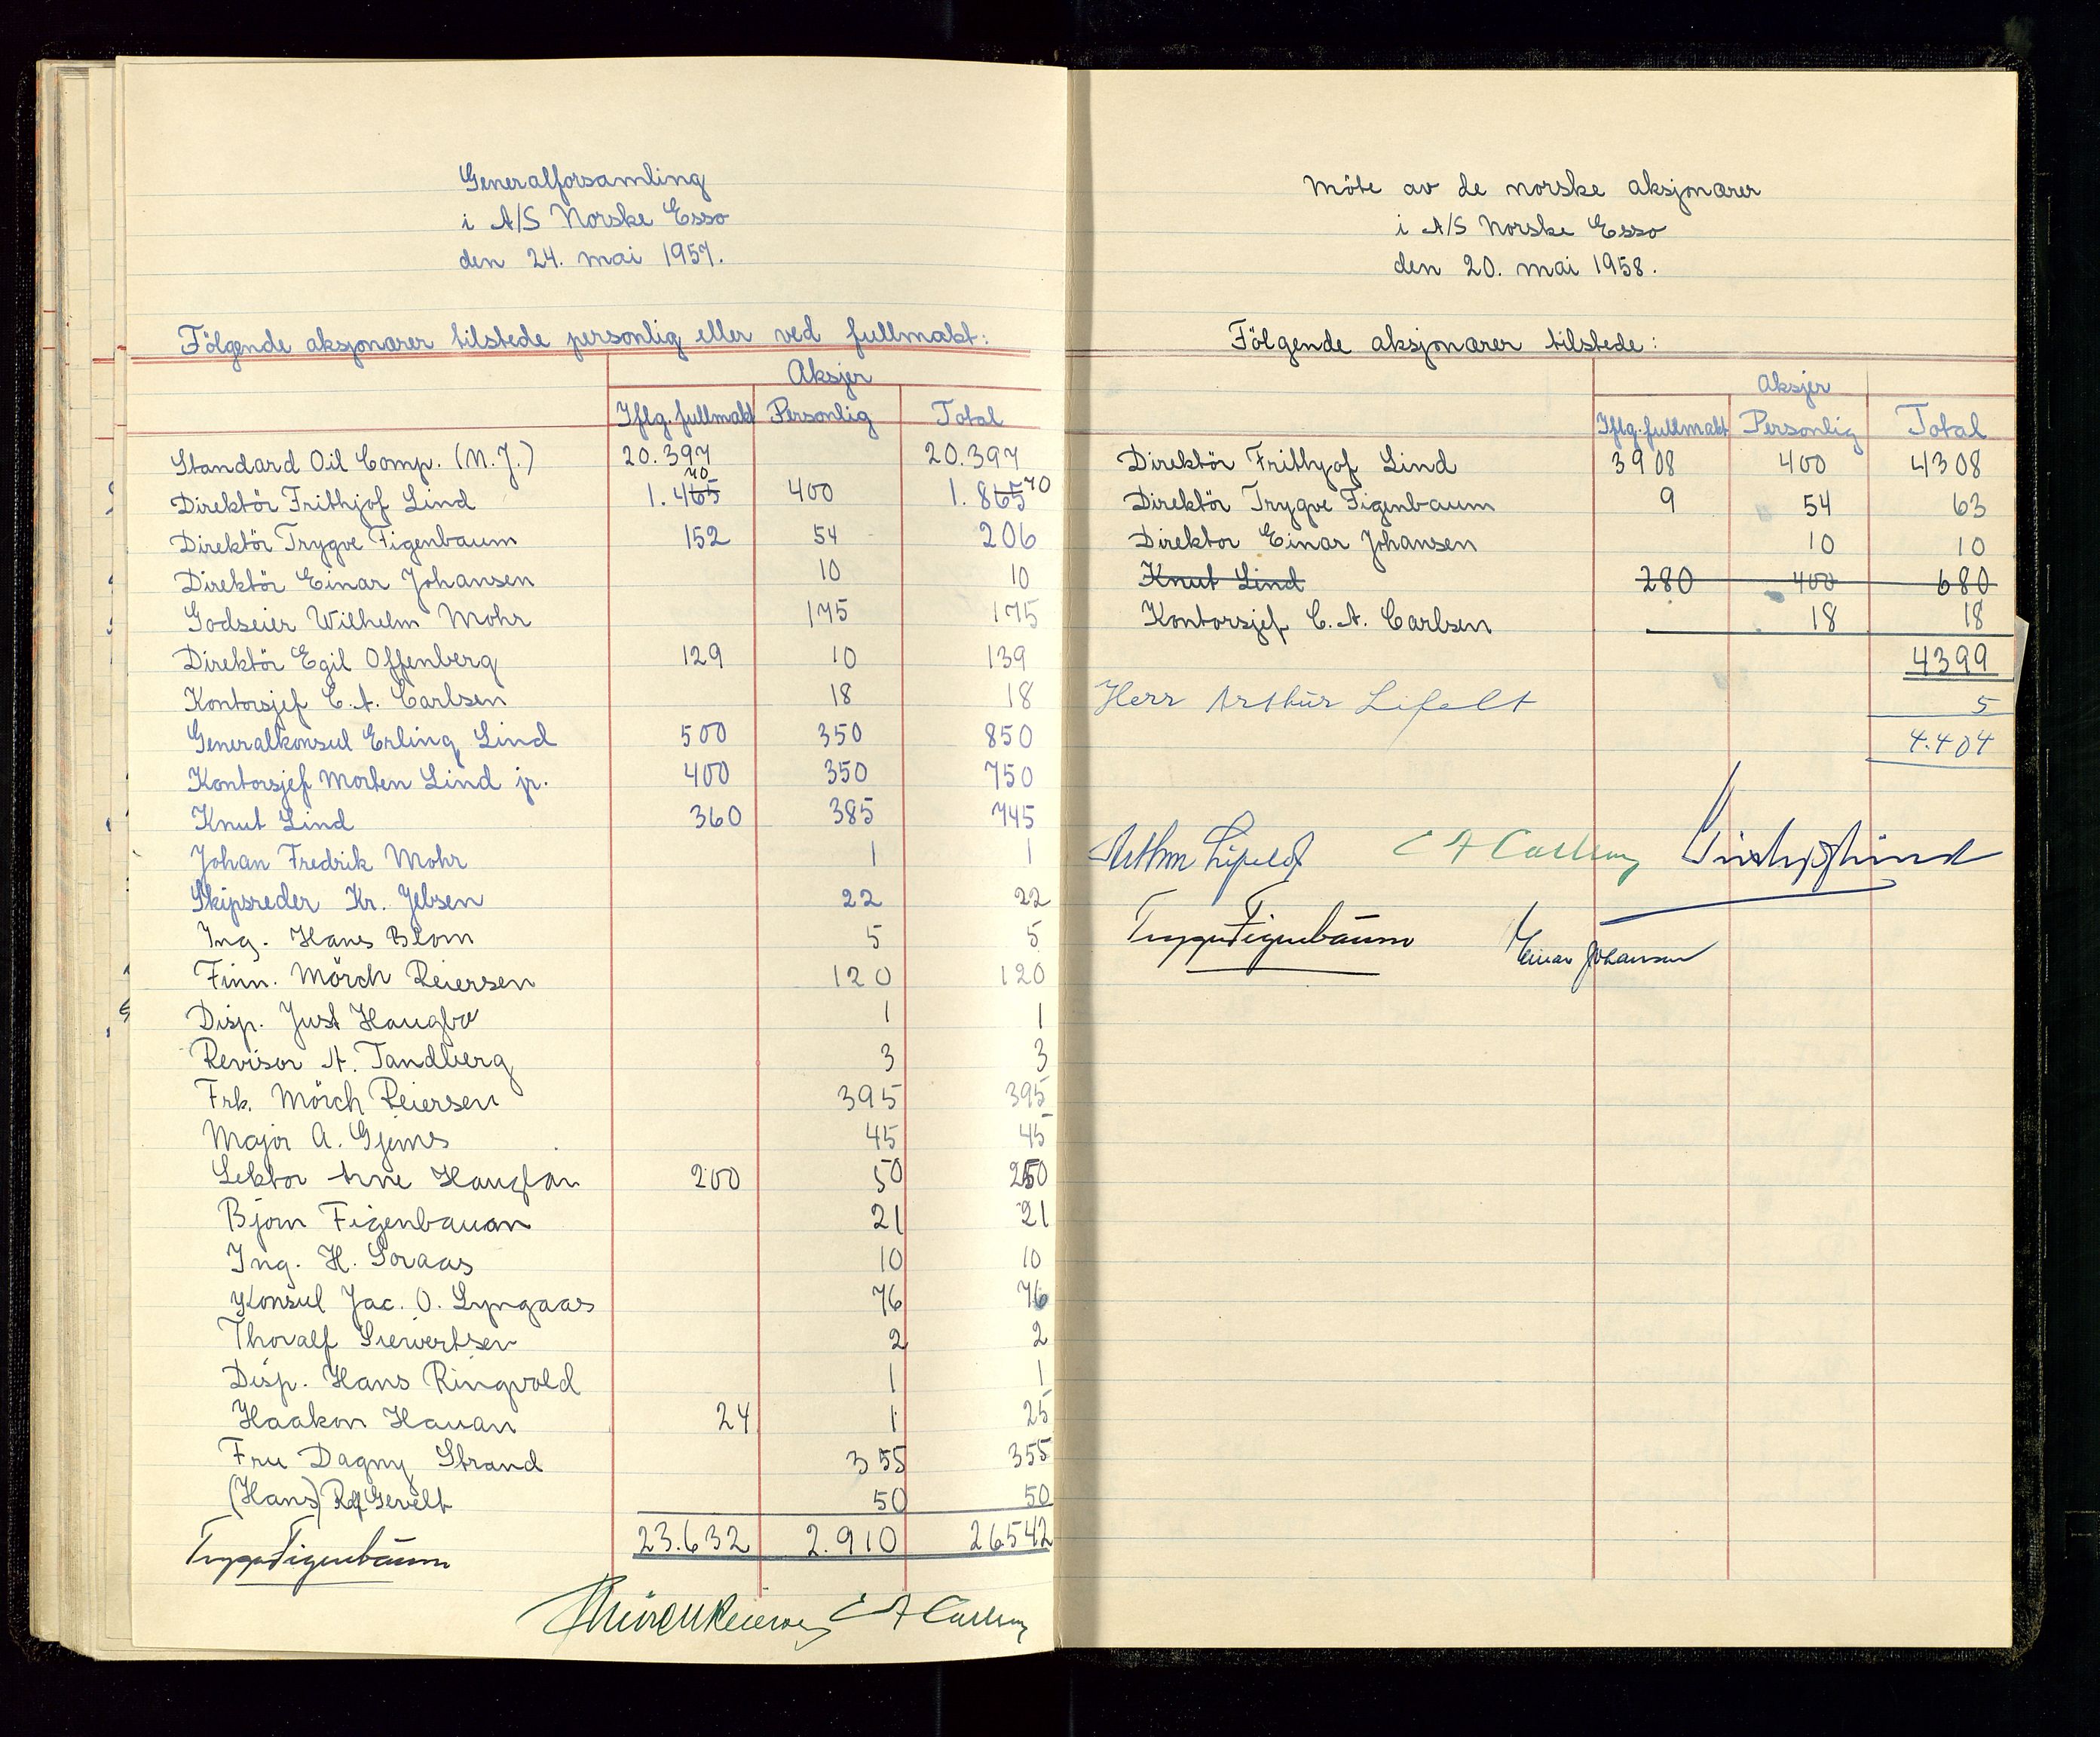 Generalforsamling
i A/S Norske Esso
den 24. mai 1957.
Fölgende aksjonærer tilstede personlig eller ved fullmakt:
Aksjer
Iflg. fullmakt Personlig Total
Standard Oil Comp. (N.J.) 20.397 20.397
Direktör Frithjof Lind 1.465 70 400 1.865 70
Direktör Trygve Figenbaum 152 54 206
Direktör Einar Johansen 10 10
Godseier Wilhelm Mohr 175 175
Direktör Egil Offenberg 129 10 139
Kontorsjef C. A. Carlsen 18 18
Generalkonsul Erling Lind 500 350 850
Kontorsjef Morten Lind jr. 400 350 750
Knut Lind 360 385 745
Johan Fredrik Mohr 1 1
Skipsreder Kr. Jebsen 22 22
Ing. Hans Blom 5 5
Finn. Mörch Reiersen 120 120
Disp. Just Haugbo 1 1
Revisor A. Tandberg 3 3
Frk. Mörch Reiersen 395 395
Major A. Gjems 45 45
Lektor Arne 200 50 250
Bjørn Figenbaum 21 21
Ing. H. Soraas 10 10
Konsul Jac. O. Lyngaas 76 76
Thoralf Siewertsen 2 2
Disp. Hans Ringvold 1 1
Haakon Hauan 24 1 25
Fru Dagny Strand 355 355
(Hans) Gevelt 50 50
23.632 2.910 26542
Trygve Figenbaum
Mörch Reiersen C A Carlsen
Möte av de norske aksjonærer
i A/S Norske Esso
den 20. mai 1958.
Fölgende aksjonærer tilstede:
Aksjer
Iflg. fullmakt Personlig Total
Direktör Frithjof Lind 3908 400 4308
Direktör Trygve Figenbaum 9 54 63
Direktor Einar Johansen 10 10
Knut Lind 280 400 680
Kontorsjef C. A. Carlsen 18 18
4399
Herr Arthur Lifelt 5
4.404
Arthur Lifelt C A Carlsen Frithjof Lind
Trygve Figenbaum Einar Johansen